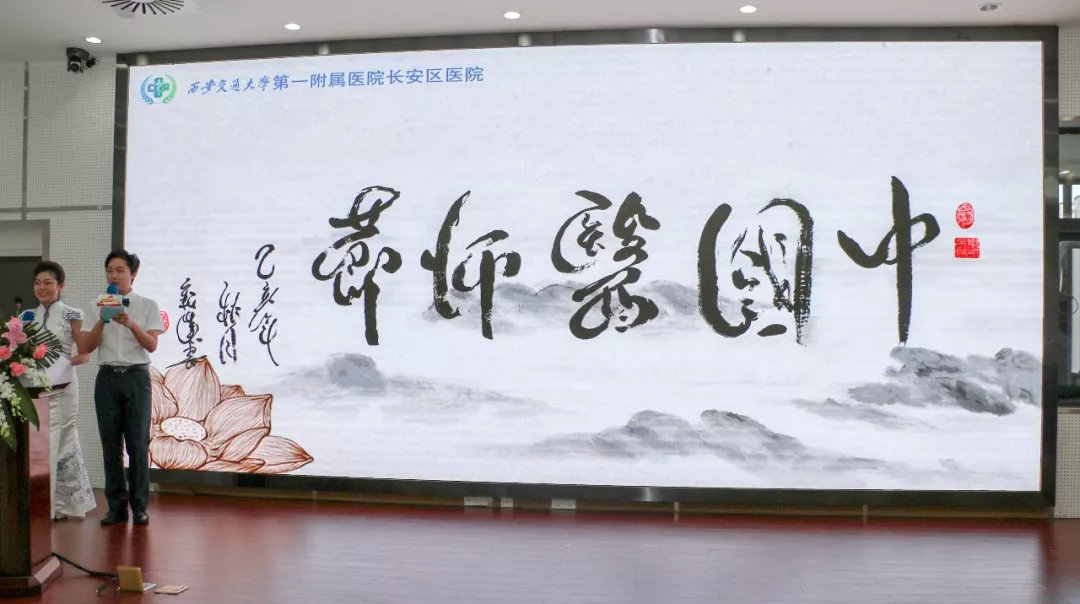 西安交通大學第一附属医院长安区医院
中國醫師節
己亥年
秋月